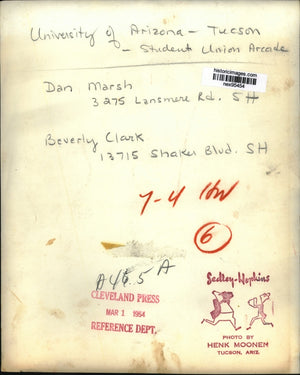 University of Arizona - Tucson
- Student Union Arcade
historicimages.com
nex95454
Dan Marsh
3275 Lansmere Rd. SH
Beverly Clark
13715 Shaker Blvd. SH
7-4
6
A
CLEVELAND PRESS
MAR 1 1964
REFERENCE DEPT.
Sedley-Hopkins
PHOTO BY
HENK MOONEN
TUCSON, ARIZ.